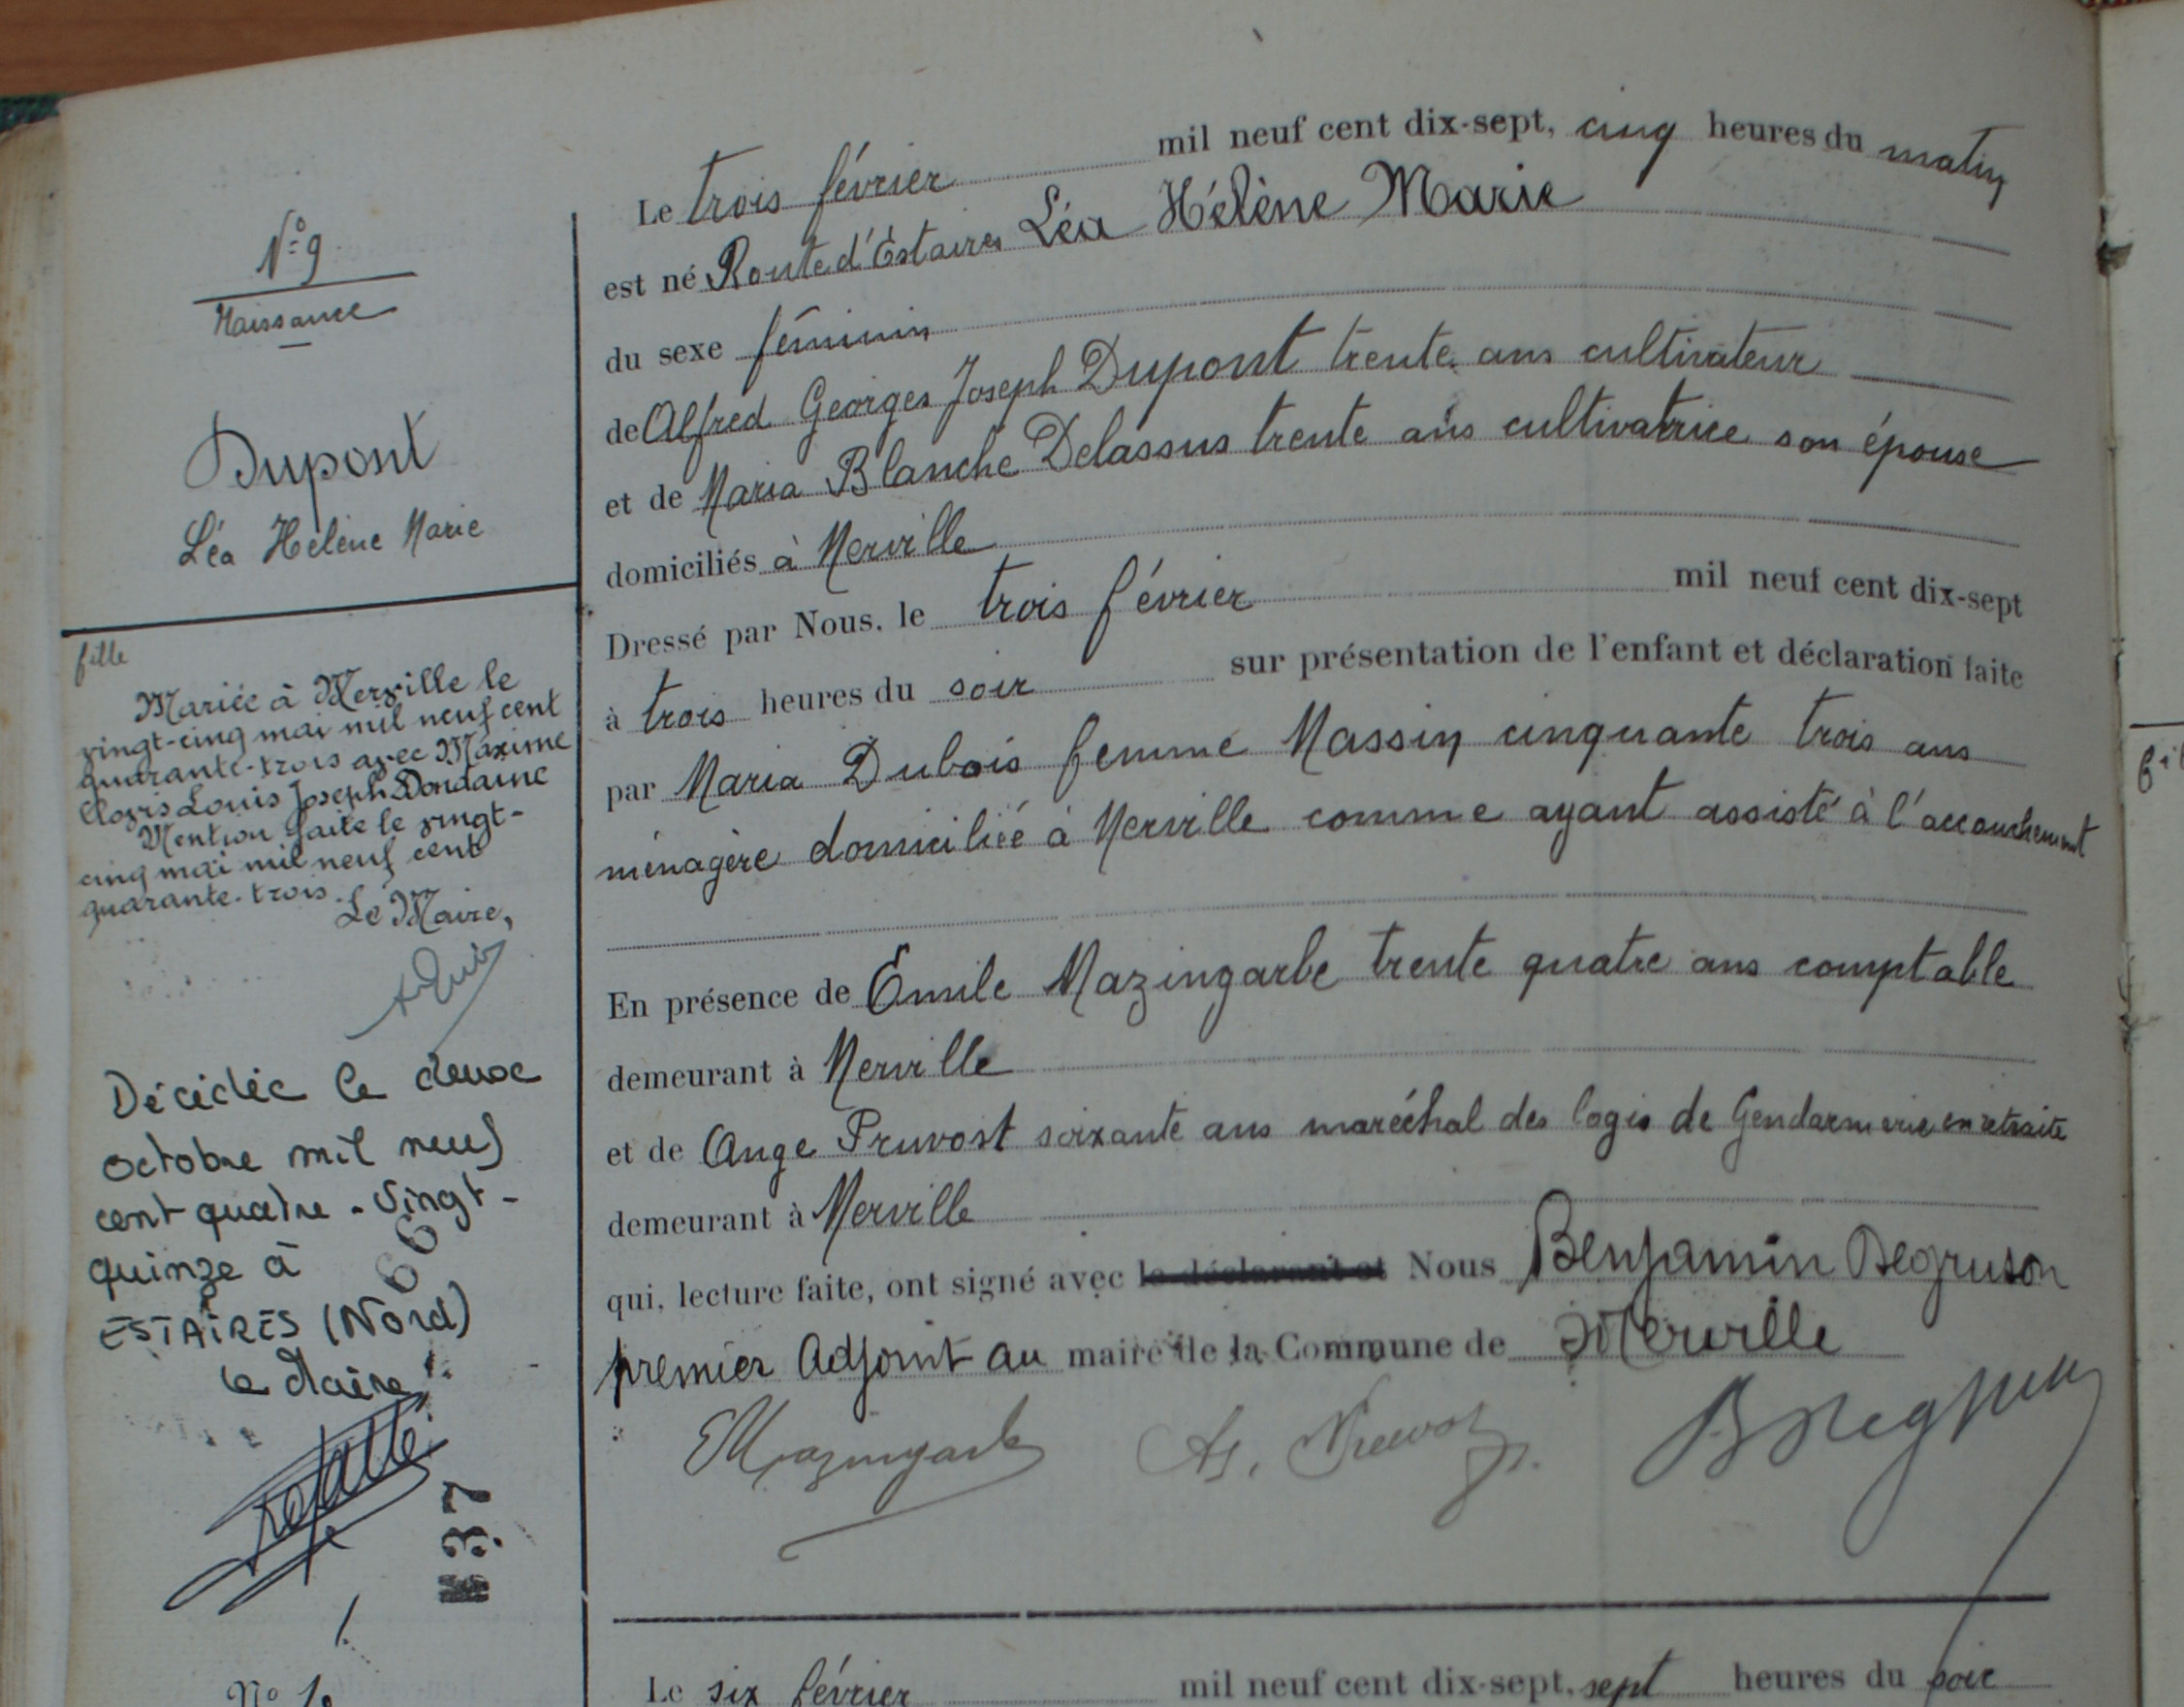 N° 9
Naissance
Dupont
Léa Hélène Marie
fille
Mariée à Merville le
vingt-cinq mai mil neuf cent
quarante-trois avec Maxime
Clovis Louis Joseph Dondaine
Mention faite le vingt-
cinq mai mil neuf cent
quarante-trois.
Le Maire,
Décédée le deux
octobre mil neuf
cent quatre-vingt-
quinze à
ESTAIRES (Nord)
le Maire
66
N 37
Le trois février mil neuf cent dix-sept, cinq heures du matin
est né Route d'Estaires Léa Hélène Marie
du sexe féminin
de Alfred Georges Joseph Dupont trente ans cultivateur
et de Maria Blanche Delassus trente ans cultivatrice son épouse
domiciliés à Merville
Dressé par Nous, le trois février mil neuf cent dix-sept
à trois heures du soir sur présentation de l'enfant et déclaration faite
par Maria Dubois femme Massin cinquante trois ans
ménagère domiciliée à Merville comme ayant assisté à l'accouchement
En présence de Emile Mazingarbe trente quatre ans comptable
demeurant à Merville
et de Ange Pruvost soixante ans maréchal des logis de Gendarmerie en retraite
demeurant à Merville
qui, lecture faite, ont signé avec le déclarant et Nous Benjamin Degruson
premier Adjoint au maire de la Commune de Merville
EMazingarbe A. Pruvost B Degruson
Le six février mil neuf cent dix-sept, sept heures du soir